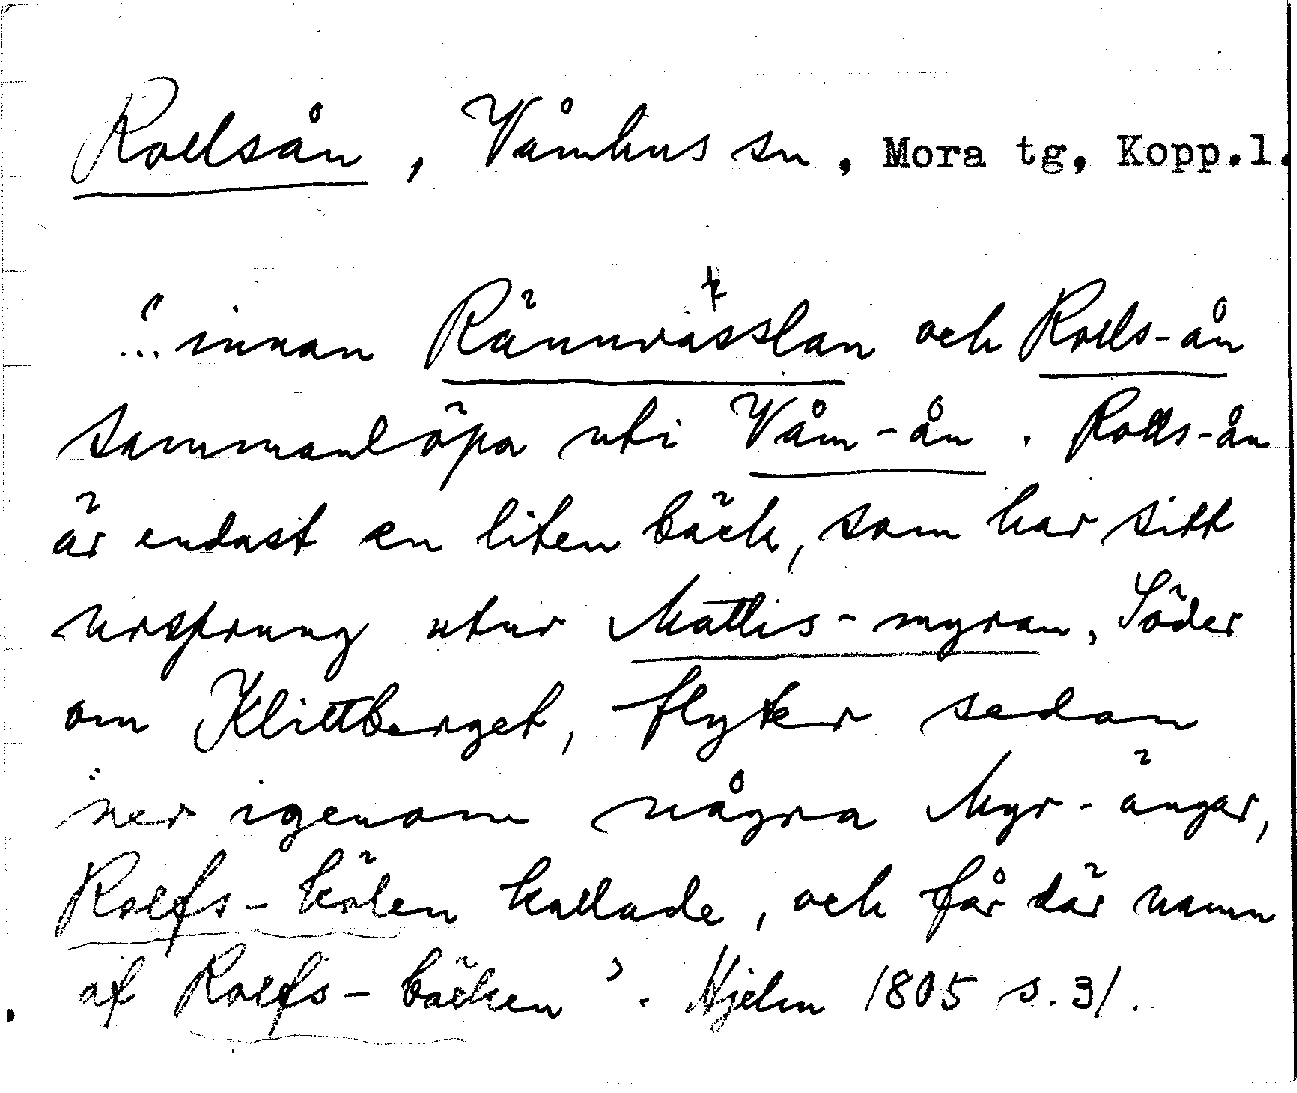 Rollsån, Våmhus sn, Mora tg, Kopp.l.
"... innan Rännvässlan och Rolls-ån
sammanlöpa uti Våm-ån. Rolls-ån
är endast en liten bäck, som har sitt
ursprung utur Mattis-myran, Söder
om Klittberget, flyter sedan
ner igenom några Myr-ängar,
Rolfs-kölen kallade, och får där namn
af Rolfs-bäcken". Hjelm 1805 s. 31.